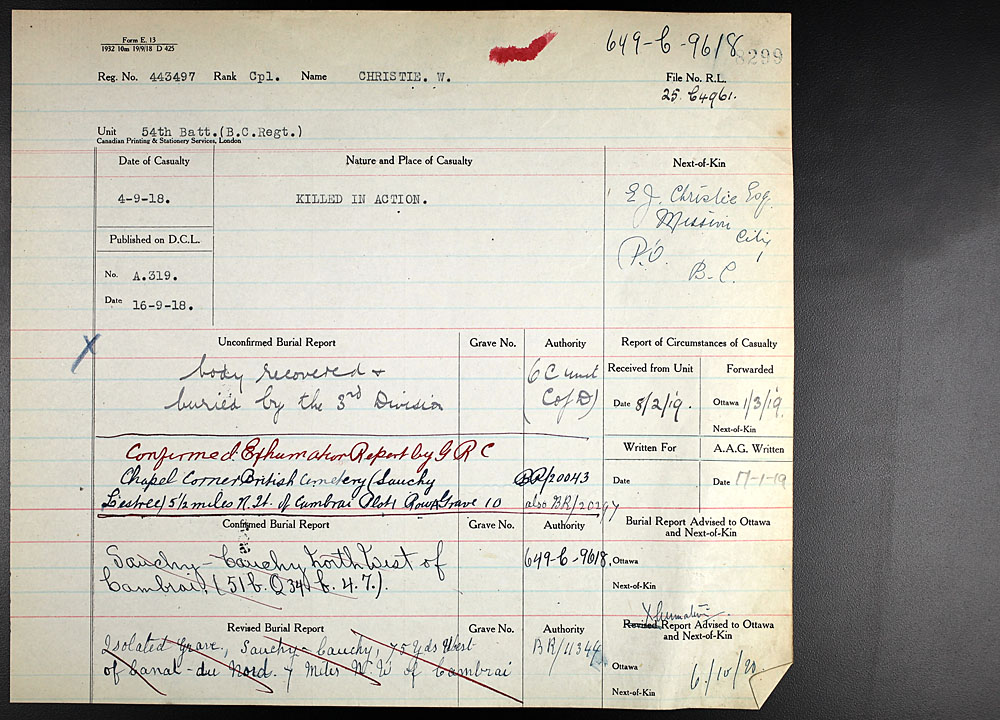 Form E. 13
1932 10m 19/9/18 D 425
649-C-9618
8299
Reg. No. 443497 Rank Cpl. Name CHRISTIE. W.
File No. R.L.
25. C4961.
Unit 54th Batt.(B.C.Regt.)
Canadian Printing & Stationery Services, London
Date of Casualty Nature and Place of Casualty Next-of-Kin
4-9-18. KILLED IN ACTION.
E J. Christie Esq.
Mission
City
P.O.
B.C.
Published on D.C.L.
No. A.319.
Date 16-9-18.
X
Unconfirmed Burial Report Grave No. Authority Report of Circumstances of Casualty
body recovered +
buried by the 3rd Division
6 C unit
(C of D)
Received from Unit Forwarded
Date 8/2/19. Ottawa 1/3/19.
Next-of-Kin
Written For A.A.G. Written
Date Date 17-1-19
Confirmed Exhumation Report by G R C
Chapel Corner British Cemetery (Sauchy BR/20043
Lestree) 5½ miles N. W. of Cambrai Plot 1 Row A Grave 10 also BR/20297
Confirmed Burial Report Grave No. Authority Burial Report Advised to Ottawa
and Next-of-Kin
Sauchy-Cauchy North West of
Cambrai. (51b. Q 34 b. 4. 7.).
649-C-9618.
Ottawa
Next-of-Kin
Xhumation
Revised Burial Report Grave No. Authority Revised Report Advised to Ottawa
and Next-of-Kin
Isolated Grave, Sauchy-Cauchy, 75 Yds West
of Canal-du Nord. 7 Miles N.W of Cambrai
BR/11344
Ottawa
6/10/20
Next-of-Kin